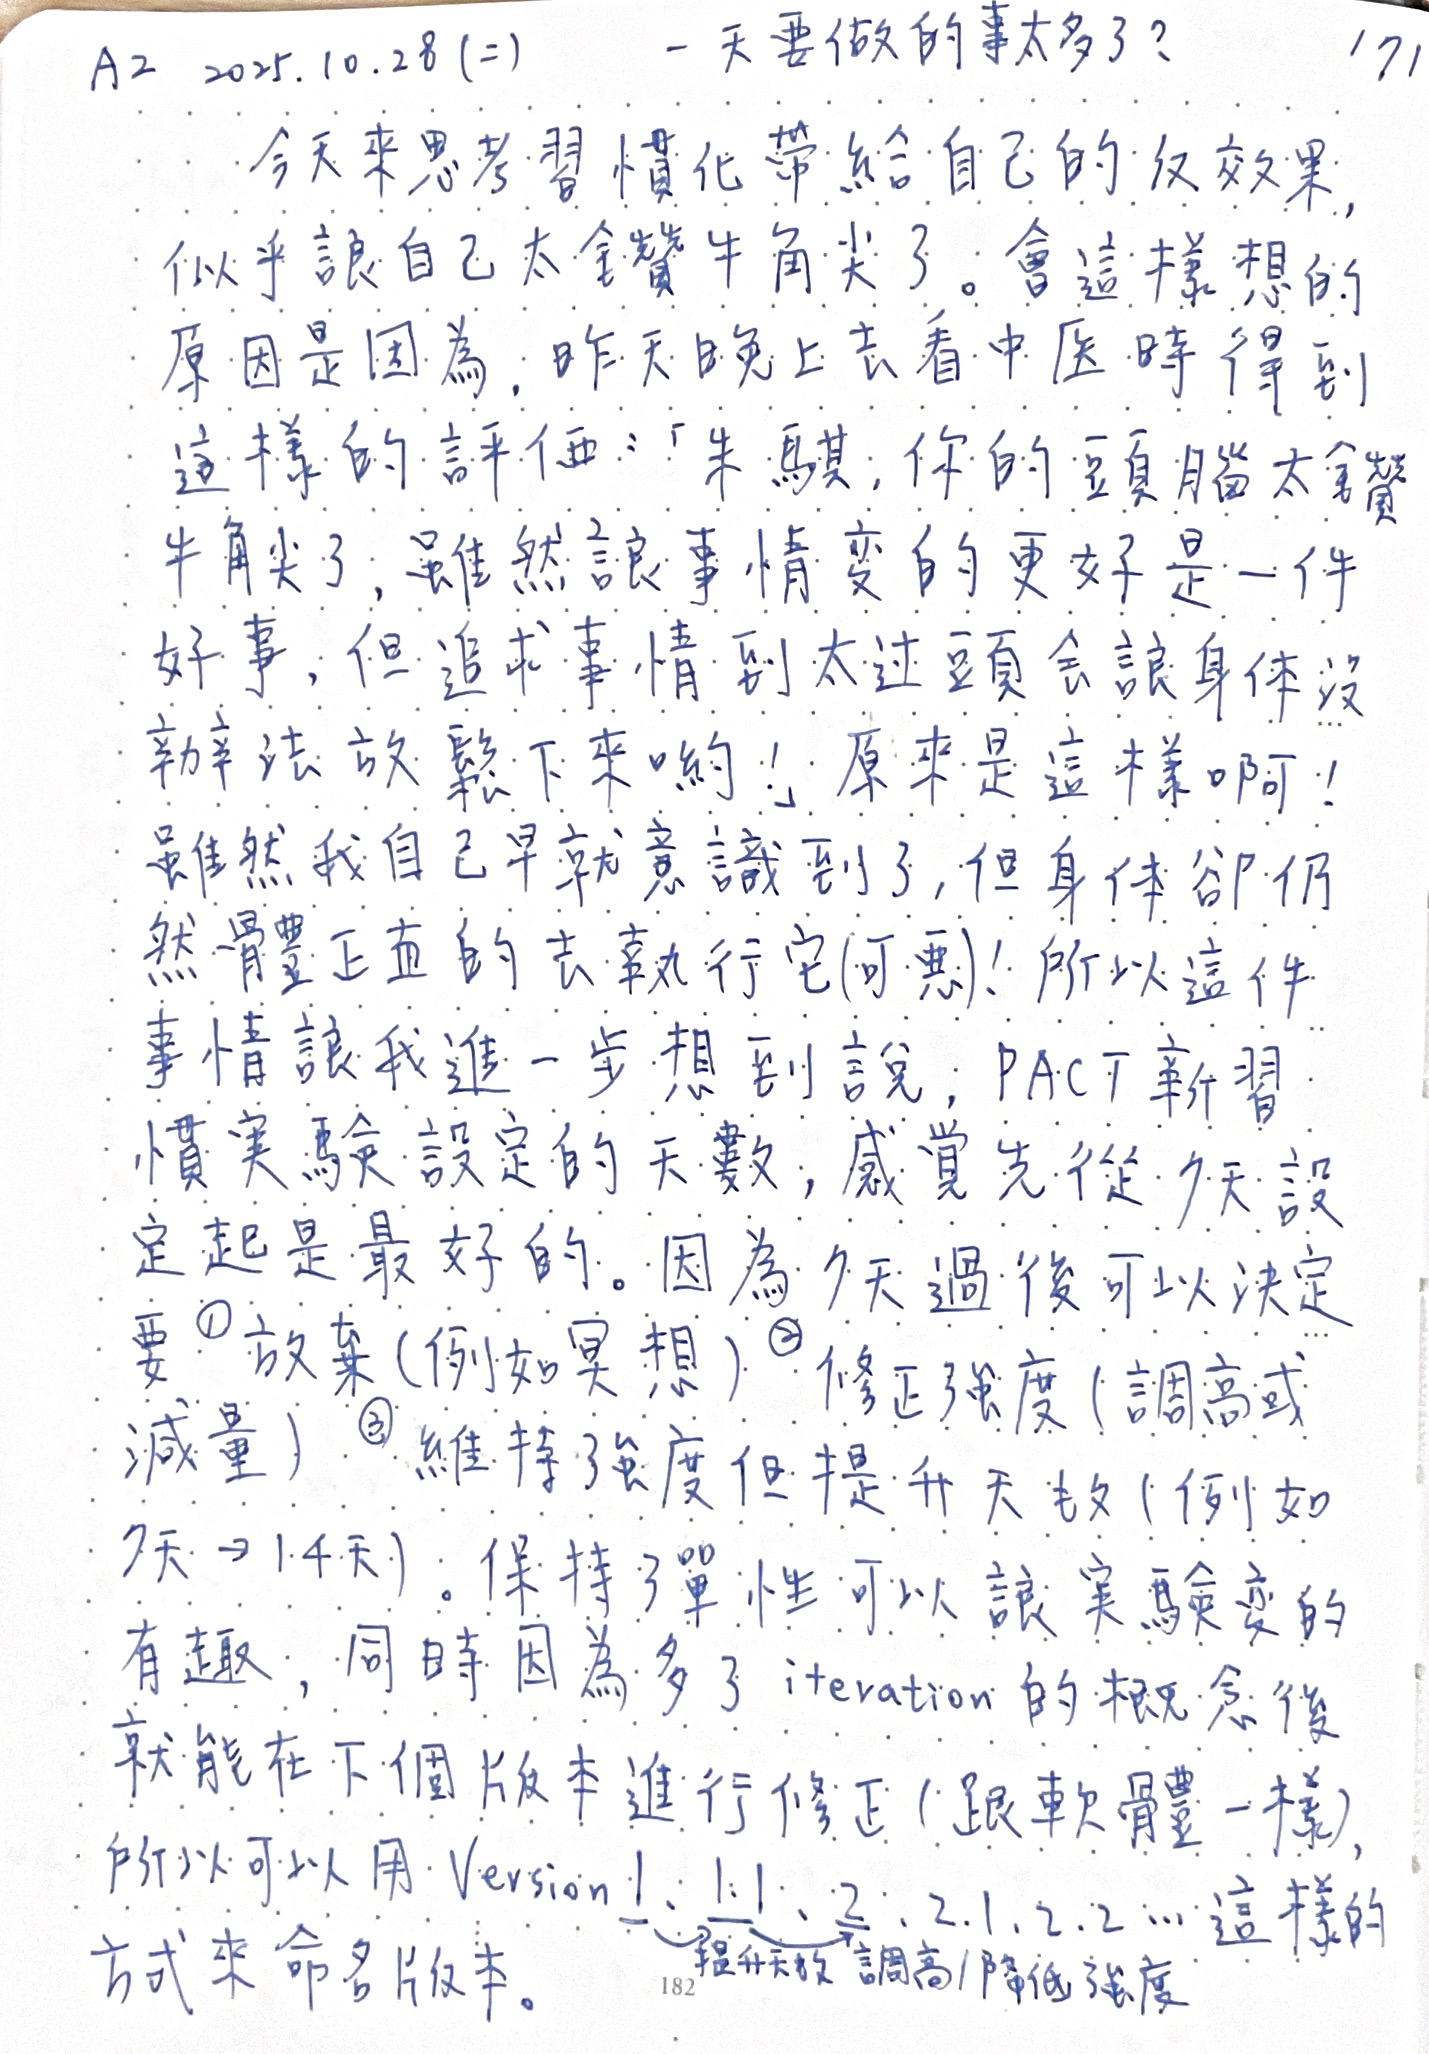 A2 2025.10.28(二) 一天要做的事太多了? 171
今天來思考習慣化帶給自己的反效果,
似乎讓自己太鑽牛角尖了。會這樣想的
原因是因為,昨天晚上去看中医時得到
這樣的評価:「朱騏,你的頭腦太鑽
牛角尖了,雖然讓事情変的更好是一件
好事,但追求事情到太过頭会讓身体没
辦法放鬆下來喲!」原來是這樣啊!
雖然我自己早就意識到了,但身体卻仍
然體正直的去執行它(可悪)!所以這件
事情讓我進一步想到說,PACT新習
慣実驗設定的天數,感覚先從7天設
定起是最好的。因為7天過後可以決定
要①放棄(例如冥想)②修正強度(調高或
減量)③維持強度但提升天数(例如
7天→14天)。保持了彈性可以讓実驗変的
有趣,同時因為多了iteration的概念後
就能在下個版本進行修正(跟軟體一樣),
所以可以用Version 1、1.1、2、2.1、2.2…這樣的
方式來命名版本。 提升天数 調高/降低強度
182